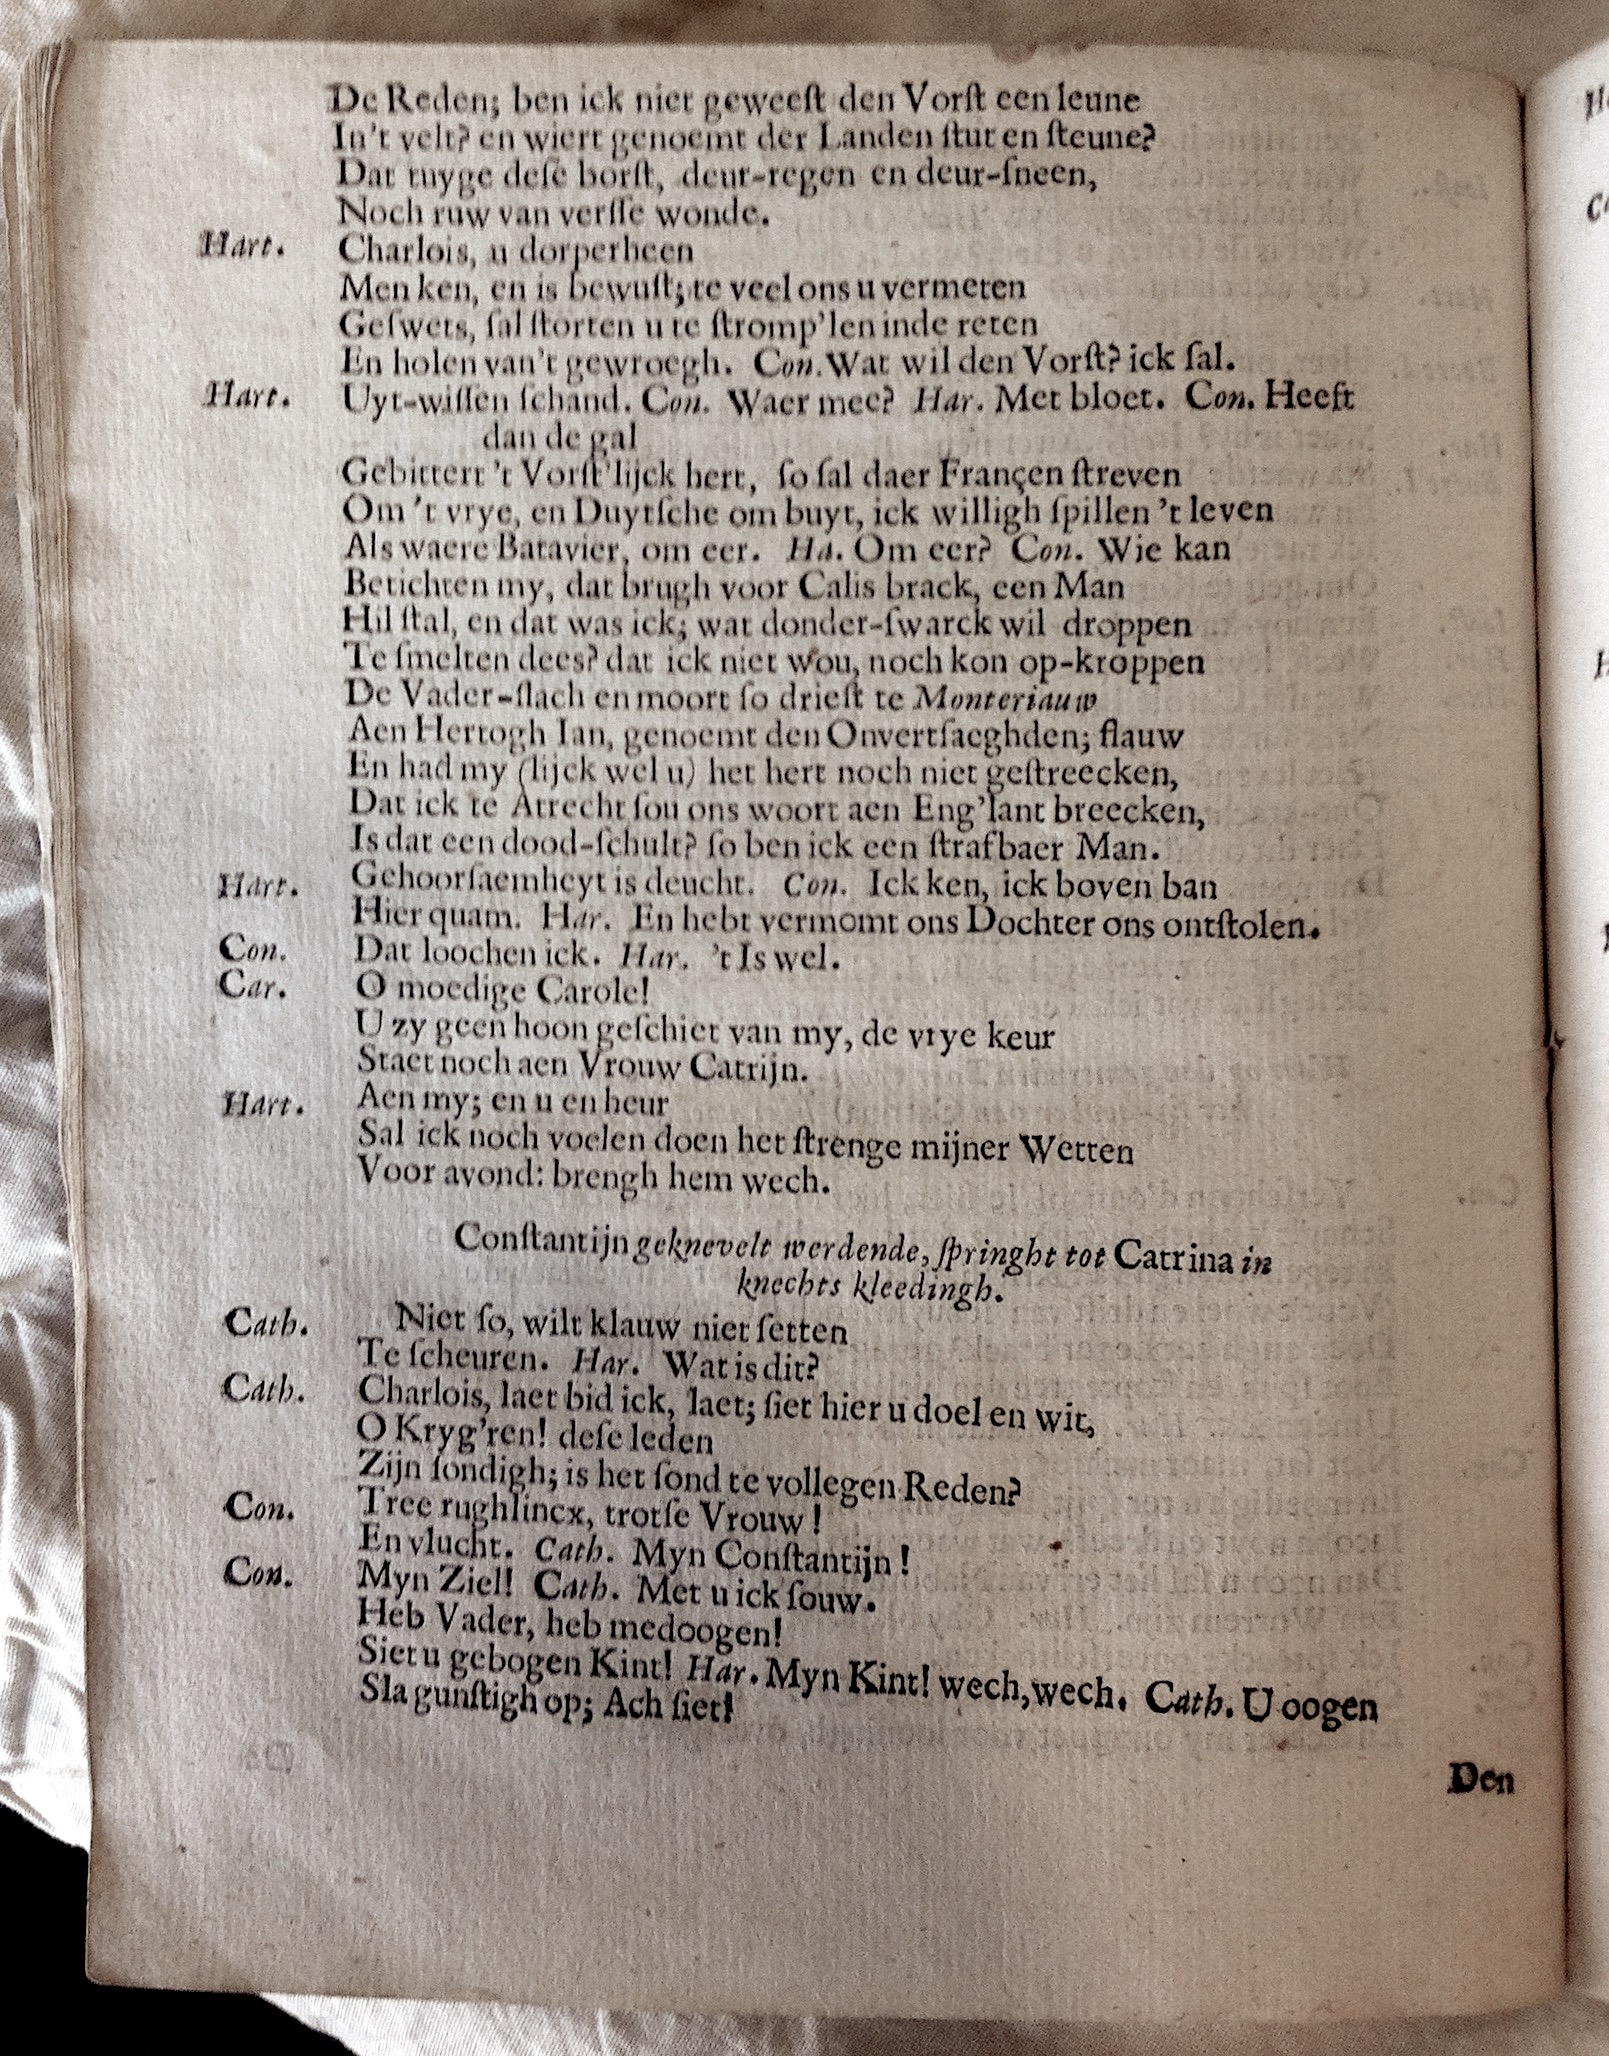 De Reden; ben ick niet geweeſt den Vorſt een leune
In't velt? en wiert genoemt der Landen ſtut en ſteune?
Dat tuyge deſe borſt, deur-regen en deur-ſneen,
Noch ruw van verſſe wonde.
Hart. Charlois, u dorperheen
Men ken, en is bewuſt; te veel ons u vermeten
Geſwets, ſal ſtorten u te ſtromp'len inde reten
En holen van't gewroegh. Con. Wat wil den Vorſt? ick ſal.
Hart. Uyt-wiſſen ſchand. Con. Waer mee? Har. Met bloet. Con. Heeft
dan de gal
Gebittert 't Vorſt'lijck hert, ſo ſal daer Françen ſtreven
Om 't vrye, en Duytſche om buyt, ick willigh ſpillen 't leven
Als waere Batavier, om eer. Ha. Om eer? Con. Wie kan
Betichten my, dat brugh voor Calis brack, een Man
Hil ſtal, en dat was ick; wat donder-ſwarck wil droppen
Te ſmelten dees? dat ick niet wou, noch kon op-kroppen
De Vader-ſlach en moort ſo drieſt te Monteriauw
Aen Hertogh Ian, genoemt den Onvertſaeghden; flauw
En had my (lijck wel u) het hert noch niet geſtreecken,
Dat ick te Atrecht ſou ons woort aen Eng'lant breecken,
Is dat een dood-ſchult? ſo ben ick een ſtrafbaer Man.
Hart. Gehoorſaemheyt is deucht. Con. Ick ken, ick boven ban
Hier quam. Har. En hebt vermomt ons Dochter ons ontſtolen.
Con. Dat loochen ick. Har. 't Is wel.
Car. O moedige Carole!
U zy geen hoon geſchiet van my, de vrye keur
Staet noch aen Vrouw Catrijn.
Hart. Aen my; en u en heur
Sal ick noch voelen doen het ſtrenge mijner Wetten
Voor avond: brengh hem wech.
Conſtantijn geknevelt werdende, ſpringht tot Catrina in
knechts kleedingh.
Cath. Niet ſo, wilt klauw niet ſetten
Te ſcheuren. Har. Wat is dit?
Cath. Charlois, laet bid ick, laet; ſiet hier u doel en wit,
O Kryg'ren! deſe leden
Zijn ſondigh; is het ſond te vollegen Reden?
Con. Tree rughlincx, trotſe Vrouw!
En vlucht. Cath. Myn Conſtantijn!
Con. Myn Ziel! Cath. Met u ick ſouw.
Heb Vader, heb medoogen!
Siet u gebogen Kint! Har. Myn Kint! wech, wech. Cath. U oogen
Sla gunſtigh op; Ach ſiet!
Den